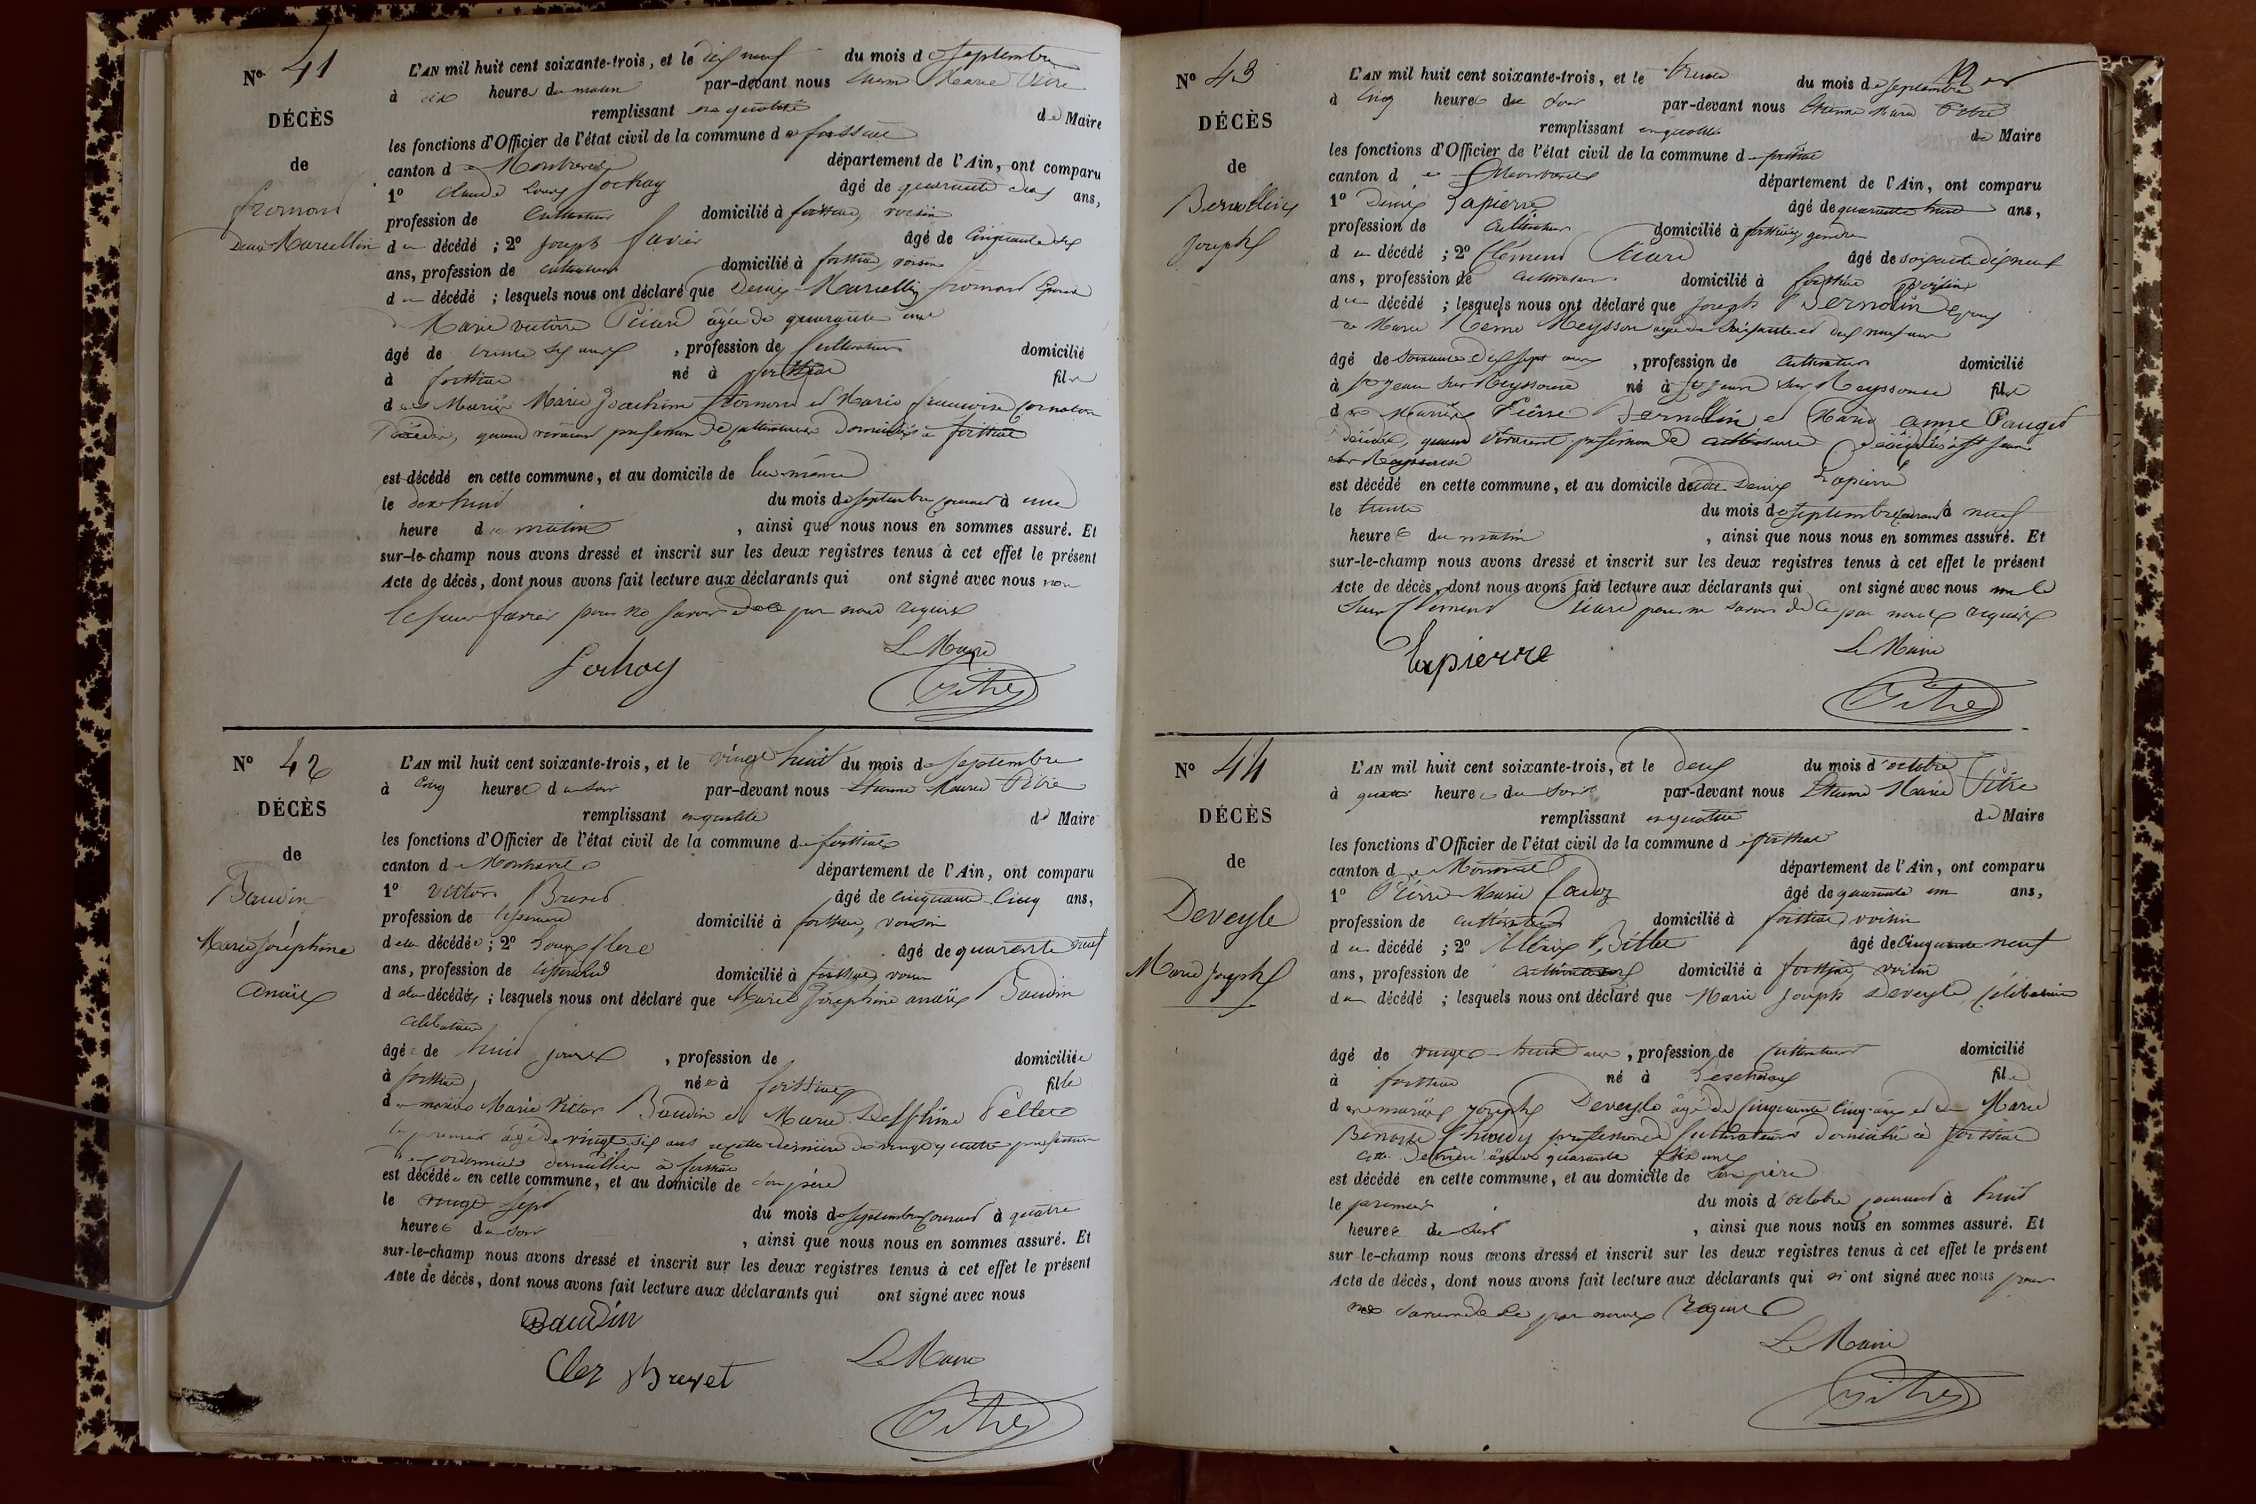 N° 41
DÉCÈS
de
fromont
Denis Marcellin
L'AN mil huit cent soixante-trois, et le dix neuf du mois de septembre
à six heures du matin par-devant nous Etienne Marie Pitre
remplissant en qualité de Maire
les fonctions d'Officier de l'état civil de la commune de foissiat
canton de Montrevel département de l'Ain, ont comparu
1° Claude Louis Sochay âgé de quarante ans,
profession de Cultivateur domicilié à foissiat, voisin
du décédé ; 2° Joseph favier âgé de Cinquante
ans, profession de cultivateur domicilié à foissiat, voisin
du décédé ; lesquels nous ont déclaré que Denis Marcellin fromont Epoux
de Marie victoire âgée de quarante
âgé de trente ans, profession de Cultivateur domicilié
à foissiat né à foissiat fils
de Mariés Marie Joachim fromont et Marie francoise
Décédés, quand vivaient profession de cultivateurs Domiciliés à foissiat
est décédé en cette commune, et au domicile de lui même
le dix huit du mois de septembre courant à une
heure du matin, ainsi que nous nous en sommes assuré. Et
sur-le-champ nous avons dressé et inscrit sur les deux registres tenus à cet effet le présent
Acte de décès, dont nous avons fait lecture aux déclarants qui ont signé avec nous non
le sieur favier pour ne savoir de ce par nous requis
Sochay Le Maire
Pitre
N° 42
DÉCÈS
de
Baudin
Marie Joséphine
Anaïs
L'AN mil huit cent soixante-trois, et le vingt huit du mois de septembre
à cinq heures du soir par-devant nous Etienne Marie Pitre
remplissant en qualité de Maire
les fonctions d'Officier de l'état civil de la commune de foissiat
canton de Montrevel département de l'Ain, ont comparu
1° Victor Brevet âgé de cinquante cinq ans,
profession de tisserand domicilié à foissiat, voisin
de la décédée ; 2° Louis Clerc âgé de quarante neuf
ans, profession de tisserand domicilié à foissiat voisin
de la décédée ; lesquels nous ont déclaré que Marie Joséphine anaïs Baudin
célibataire
âgée de huit jours, profession de domiciliée
à foissiat née à foissiat fille
de mariés Marie Victor Baudin et Marie Delphine
le premier âgé de vingt six ans et cette dernière de vingt quatre profession
de cordonnier domiciliés à foissiat
est décédée en cette commune, et au domicile de son père
le vingt sept du mois de septembre courant à quatre
heures du soir, ainsi que nous nous en sommes assuré. Et
sur-le-champ nous avons dressé et inscrit sur les deux registres tenus à cet effet le présent
Acte de décès, dont nous avons fait lecture aux déclarants qui ont signé avec nous
Baudin
Brevet Le Maire
Pitre
N° 43
DÉCÈS
de
Bernollin
Joseph
L'AN mil huit cent soixante-trois, et le trente du mois de septembre
à cinq heures du soir par-devant nous Etienne Marie Pitre
remplissant en qualité de Maire
les fonctions d'Officier de l'état civil de la commune de foissiat
canton de Montrevel département de l'Ain, ont comparu
1° Denis Lapierre âgé de quarante huit ans,
profession de cultivateur domicilié à foissiat, gendre
du décédé ; 2° Clement âgé de soixante dix neuf
ans, profession de cultivateur domicilié à foissiat voisin
du décédé ; lesquels nous ont déclaré que Joseph Bernollin Epoux
de Marie Reine Meysson agée de soixante et dix neuf ans
âgé de soixante dix sept ans, profession de cultivateur domicilié
à St Jean sur Reyssouze né à St Jean sur Reyssouze fils
de Mariés Pierre Bernollin et Marie anne Pauget
Décédés, quand vivaient profession de cultivateurs Domiciliés à St Jean
sur Reyssouze
est décédé en cette commune, et au domicile de Denis Lapierre
le trente du mois de septembre courant à neuf
heures du matin, ainsi que nous nous en sommes assuré. Et
sur-le-champ nous avons dressé et inscrit sur les deux registres tenus à cet effet le présent
Acte de décès, dont nous avons fait lecture aux déclarants qui ont signé avec nous non le
Sieur Clement pour ne savoir de ce par nous requis
Lapierre Le Maire
Pitre
N° 44
DÉCÈS
de
Deveyle
Marie Joseph
L'AN mil huit cent soixante-trois, et le deux du mois d'octobre
à quatre heures du soir par-devant nous Etienne Marie Pitre
remplissant en qualité de Maire
les fonctions d'Officier de l'état civil de la commune de foissiat
canton de Montrevel département de l'Ain, ont comparu
1° Pierre Marie âgé de quarante un ans,
profession de cultivateur domicilié à foissiat voisin
du décédé ; 2° Alexis Billet âgé de Cinquante neuf
ans, profession de cultivateur domicilié à foissiat, voisin
du décédé ; lesquels nous ont déclaré que Marie Joseph Deveyle célibataire
âgé de vingt huit ans, profession de cultivateur domicilié
à foissiat né à Lescheroux fils
de mariés Joseph Deveyle âgé de cinquante cinq ans et de Marie
Benoite profession de Cultivateurs domiciliés à foissiat
cette dernière âgée de quarante six ans
est décédé en cette commune, et au domicile de son père
le premier du mois d'octobre courant à huit
heures du soir, ainsi que nous nous en sommes assuré. Et
sur-le-champ nous avons dressé et inscrit sur les deux registres tenus à cet effet le présent
Acte de décès, dont nous avons fait lecture aux déclarants qui n'ont signé avec nous pour
ne savoir de ce par nous Requis
Le Maire
Pitre